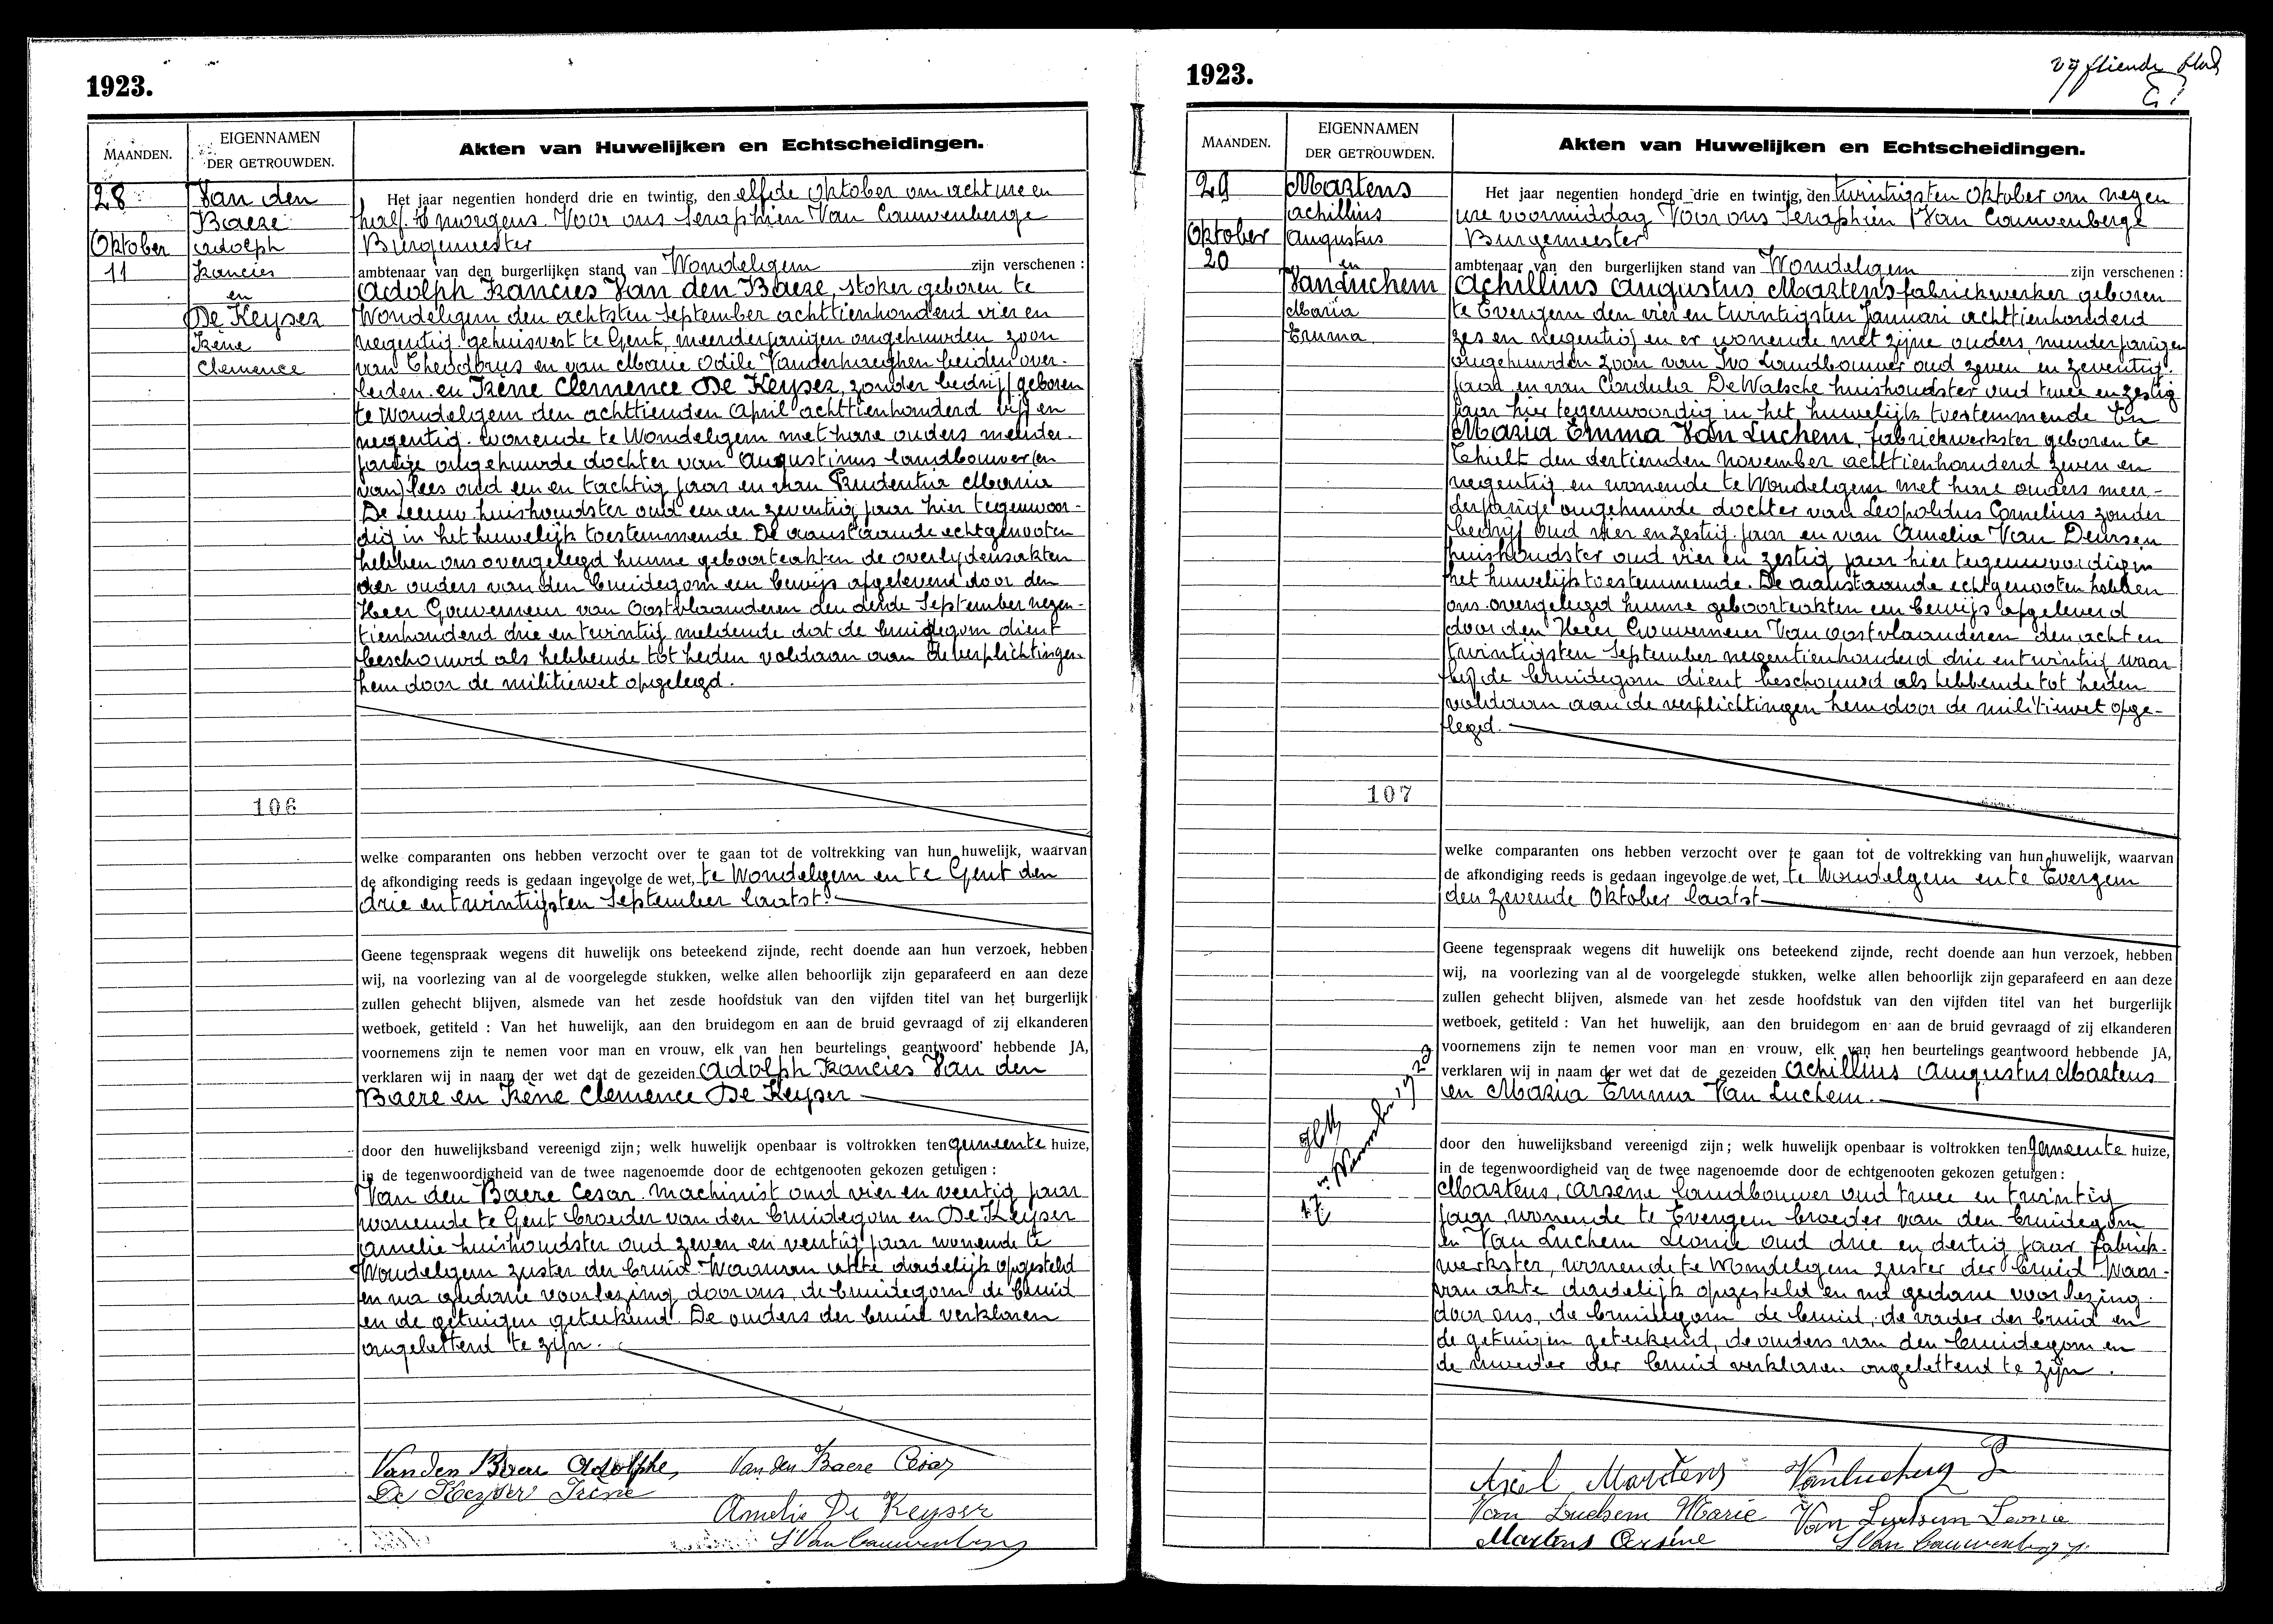 1923.
MAANDEN.
EIGENNAMEN
DER GETROUWDEN.
Akten van Huwelijken en Echtscheidingen.
28
Oktober
11
Van den
Baere
Adolph
Francies
en
De Keyser
Irène
Clemence
106
Het jaar negentien honderd drie en twintig, den elfde Oktober om acht ure en
half 's morgens. Voor ons Seraphien Van Cauwenberge
Burgemeester
ambtenaar van den burgerlijken stand van Wondelgem zijn verschenen :
Adolph Francies Van den Baere, stoker geboren te
Wondelgem den achtsten September achttienhonderd vier en
negentig gehuisvest te Gent, meerderjarigen ongehuwden zoon
van Theodorus en van Marie Odile Vanderhaeghen beiden over-
leden en Irène Clemence De Keyser, zonder bedrijf geboren
te Wondelgem den achttienden April achttienhonderd vijf en
negentig. wonende te Wondelgem met hare ouders meerder-
jarige ongehuwde dochter van Augustinus landbouwer (en
van) lees oud een en tachtig jaar en van Prudentia Maria
De Leeuw huishoudster oud een en zeventig jaar hier tegenwoor-
dig in het huwelijk toestemmende. De aanstaande echtgenooten
hebben ons overgelegd hunne geboorteakten de overlijdensakten
der ouders van den bruidegom een bewijs afgeleverd door den
Heer Gouverneur van Oostvlaanderen den derde September negen-
tienhonderd drie en twintig meldende dat de bruidegom dient
beschouwd als hebbende tot heden voldaan aan de verplichtingen
hem door de militiewet opgelegd.
welke comparanten ons hebben verzocht over te gaan tot de voltrekking van hun huwelijk, waarvan
de afkondiging reeds is gedaan ingevolge de wet, te Wondelgem en te Gent den
drie en twintigsten September laatst.
Geene tegenspraak wegens dit huwelijk ons beteekend zijnde, recht doende aan hun verzoek, hebben
wij, na voorlezing van al de voorgelegde stukken, welke allen behoorlijk zijn geparafeerd en aan deze
zullen gehecht blijven, alsmede van het zesde hoofdstuk van den vijfden titel van het burgerlijk
wetboek, getiteld : Van het huwelijk, aan den bruidegom en aan de bruid gevraagd of zij elkanderen
voornemens zijn te nemen voor man en vrouw, elk van hen beurtelings geantwoord hebbende JA,
verklaren wij in naam der wet dat de gezeiden Adolph Francies Van den
Baere en Irène Clemence De Keyser
door den huwelijksband vereenigd zijn; welk huwelijk openbaar is voltrokken ten gemeente huize,
in de tegenwoordigheid van de twee nagenoemde door de echtgenooten gekozen getuigen :
Van den Baere Cesar machinist oud vier en veertig jaar
wonende te Gent broeder van den bruidegom en De Keyser
Amelie huishoudster oud zeven en veertig jaar wonende te
Wondelgem zuster der bruid. Waarvan akte dadelijk opgesteld
en na gedane voorlezing door ons, de bruidegom de bruid
en de getuigen geteekend. De ouders der bruid verklaren
ongeletterd te zijn.
Van den Baere Adolphe, Van den Baere César
De Keyser Irène
Amelie De Keyser
S Van Cauwenberge
1923.
vijftiende blad
MAANDEN.
EIGENNAMEN
DER GETROUWDEN.
Akten van Huwelijken en Echtscheidingen.
29
Oktober
20
Martens
Achillius
Augustus
en
Van Luchem
Maria
Emma
107
17 November 1923
Het jaar negentien honderd drie en twintig, den twintigsten Oktober om negen
ure voormiddag Voor ons Seraphien Van Cauwenberge
Burgemeester
ambtenaar van den burgerlijken stand van Wondelgem zijn verschenen :
Achillius Augustus Martens fabriekwerker geboren
te Evergem den vier en twintigsten Januari achttienhonderd
zes en negentig en er wonende met zijne ouders, meerderjarigen
ongehuwden zoon van Ivo Landbouwer oud zeven en zeventig
jaar en van Cordulia De Walsche huishoudster oud twee en zestig
jaar hier tegenwoordig in het huwelijk toestemmende En
Maria Emma Van Luchem, fabriekwerkster geboren te
Thielt den dertienden November achttienhonderd zeven en
negentig en wonende te Wondelgem met hare ouders meer-
derjarige ongehuwde dochter van Leopoldus Cornelius zonder
bedrijf oud vier en zestig jaar en van Amelia Van Deursen
huishoudster oud vier en zestig jaar hier tegenwoordig in
het huwelijk toestemmende. De aanstaande echtgenooten hebben
ons overgelegd hunne geboorteakten een bewijs afgeleverd
door den Heer Gouverneur Van Oostvlaanderen den acht en
twintigsten September negentienhonderd drie en twintig waar
bij de bruidegom dient beschouwd als hebbende tot heden
voldaan aan de verplichtingen hem door de militiewet opge-
legd.
welke comparanten ons hebben verzocht over te gaan tot de voltrekking van hun huwelijk, waarvan
de afkondiging reeds is gedaan ingevolge de wet, te Wondelgem en te Evergem
den zevende Oktober laatst
Geene tegenspraak wegens dit huwelijk ons beteekend zijnde, recht doende aan hun verzoek, hebben
wij, na voorlezing van al de voorgelegde stukken, welke allen behoorlijk zijn geparafeerd en aan deze
zullen gehecht blijven, alsmede van het zesde hoofdstuk van den vijfden titel van het burgerlijk
wetboek, getiteld : Van het huwelijk, aan den bruidegom en aan de bruid gevraagd of zij elkanderen
voornemens zijn te nemen voor man en vrouw, elk van hen beurtelings geantwoord hebbende JA,
verklaren wij in naam der wet dat de gezeiden Achillius Augustus Martens
en Maria Emma Van Luchem.
door den huwelijksband vereenigd zijn; welk huwelijk openbaar is voltrokken ten gemeente huize,
in de tegenwoordigheid van de twee nagenoemde door de echtgenooten gekozen getuigen :
Martens, Arsène landbouwer oud twee en twintig
jaar, wonende te Evergem broeder van den bruidegom
en Van Luchem Leonie oud drie en dertig jaar fabriek-
werkster, wonende te Wondelgem zuster der bruid. Waar-
van akte dadelijk opgesteld en na gedane voorlezing
door ons, de bruidegom de bruid, de vader der bruid en
de getuigen geteekend, de ouders van den bruidegom en
de moeder der bruid verklaren ongeletterd te zijn.
Martens
Van Luchem Marie Van Luchem Leonie
Martens Arsène S Van Cauwenberge